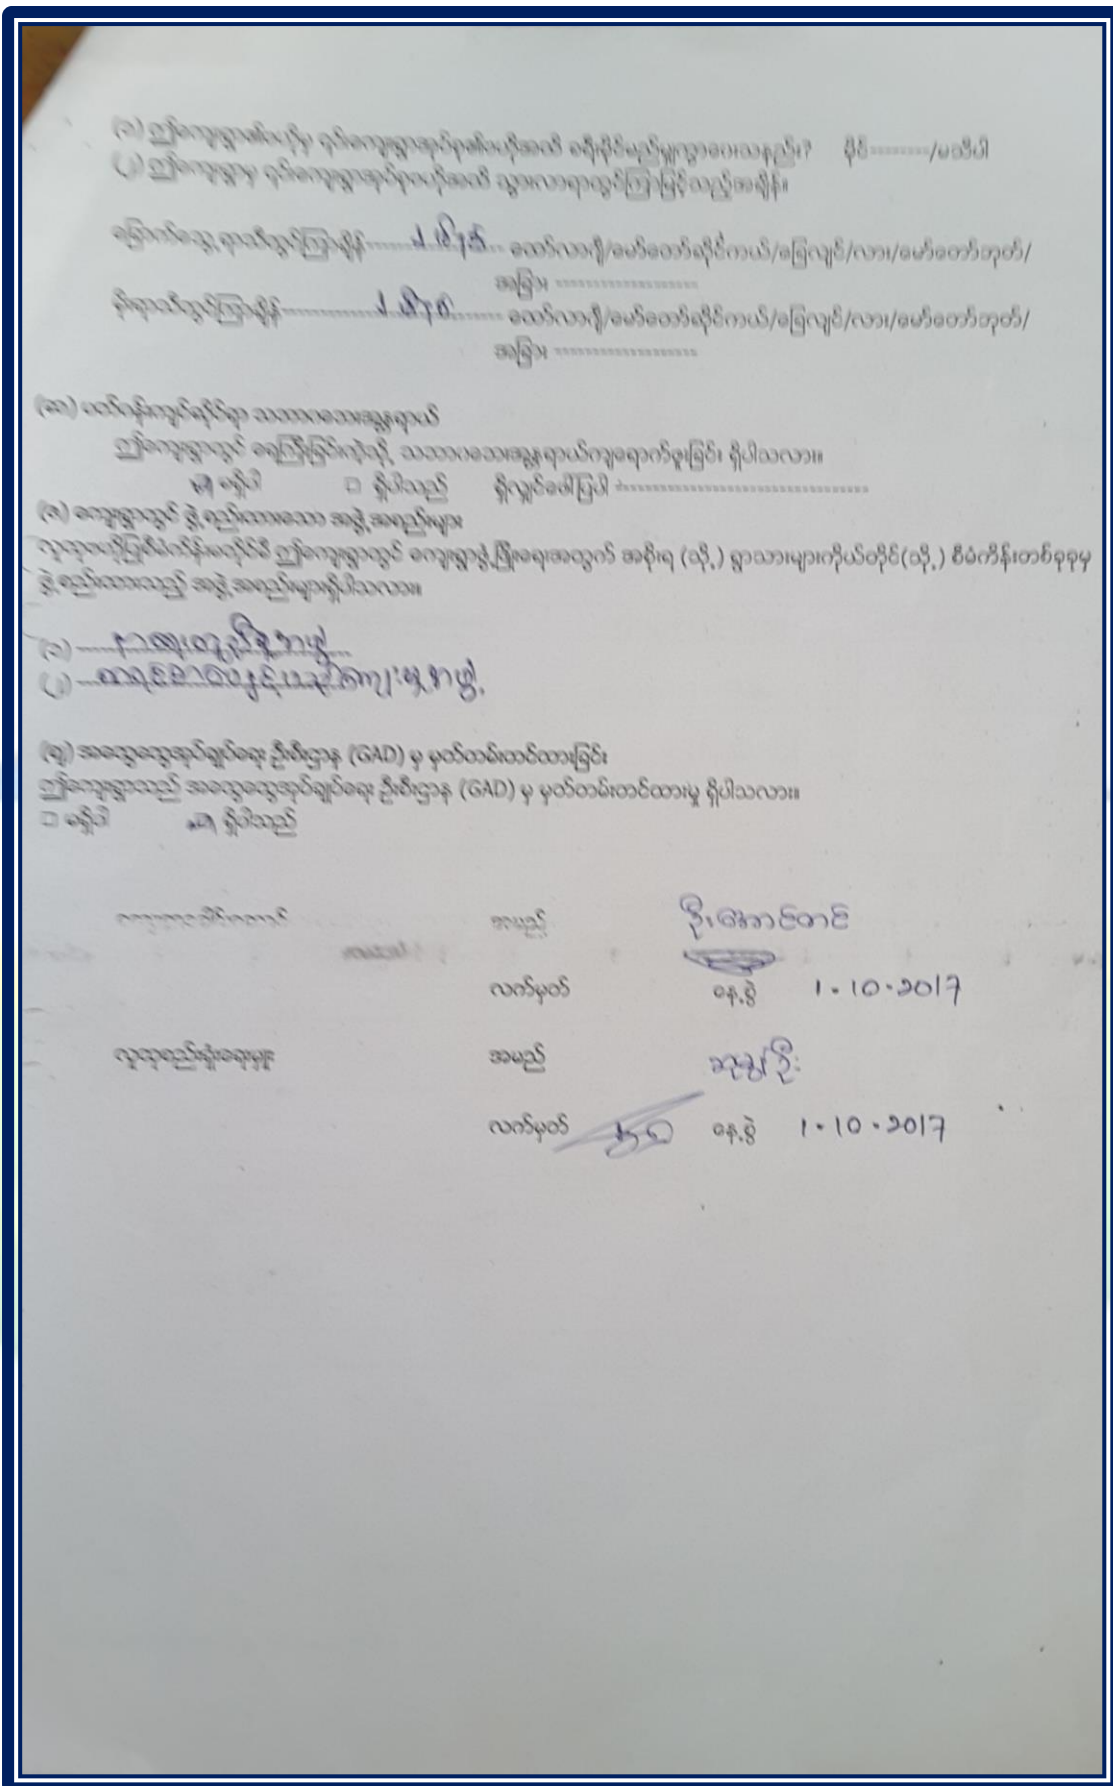 (၁) ဤကျေးရွာ၏ဗဟိုမှ ၎င်းကျေးရွာအုပ်စု၏ဗဟိုအထိ ခရီးမိုင်မည်မျှကွာဝေးသနည်း? မိုင်--------/မသိပါ
(၂) ဤကျေးရွာမှ ၎င်းကျေးရွာအုပ်စုဗဟိုအထိ သွားလာရာတွင်ကြာမြင့်သည့်အချိန်။
ခြောက်သွေ့ရာသီတွင်ကြာချိန် ထော်လာဂျီ/မော်တော်ဆိုင်ကယ်/ခြေလျင်/လား/မော်တော်ဘုတ်/
အခြား -------------------
မိုးရာသီတွင်ကြာချိန် ထော်လာဂျီ/မော်တော်ဆိုင်ကယ်/ခြေလျင်/လား/မော်တော်ဘုတ်/
အခြား -------------------
(ဆ) ပတ်ဝန်းကျင်ဆိုင်ရာ သဘာဝဘေးအန္တရာယ်
ဤကျေးရွာတွင် ရေကြီးခြင်းကဲ့သို့ သဘာဝဘေးအန္တရာယ်ကျရောက်ဖူးခြင်း ရှိပါသလား။
မရှိပါ □ ရှိပါသည် ရှိလျှင်ဖေါ်ပြပါ -------------------------------
ကျေးရွာတွင် ဖွဲ့စည်းထားသော အဖွဲ့အစည်းများ
လူထုဗဟိုပြုစီမံကိန်းမတိုင်မီ ဤကျေးရွာတွင် ကျေးရွာဖွံ့ဖြိုးရေးအတွက် အစိုးရ (သို့) ရွာသားများကိုယ်တိုင်(သို့) စီမံကိန်းတစ်ခုခုမှ
ဖွဲ့စည်းထားသည့် အဖွဲ့အစည်းများရှိပါသလား။
(၁) နာရေးကူညီမှုအဖွဲ့
(၂)
(ဈ) အထွေထွေအုပ်ချုပ်ရေး ဦးစီးဌာန (GAD) မှ မှတ်တမ်းတင်ထားခြင်း
ဤကျေးရွာသည် အထွေထွေအုပ်ချုပ်ရေး ဦးစီးဌာန (GAD) မှ မှတ်တမ်းတင်ထားမှု ရှိပါသလား။
□ မရှိပါ ရှိပါသည်
အမည် ဦးအောင်တင်
လက်မှတ် နေ့စွဲ 1.10.2017
လူထုစည်းရုံးရေးမှူး အမည်
လက်မှတ် နေ့စွဲ 1.10.2017